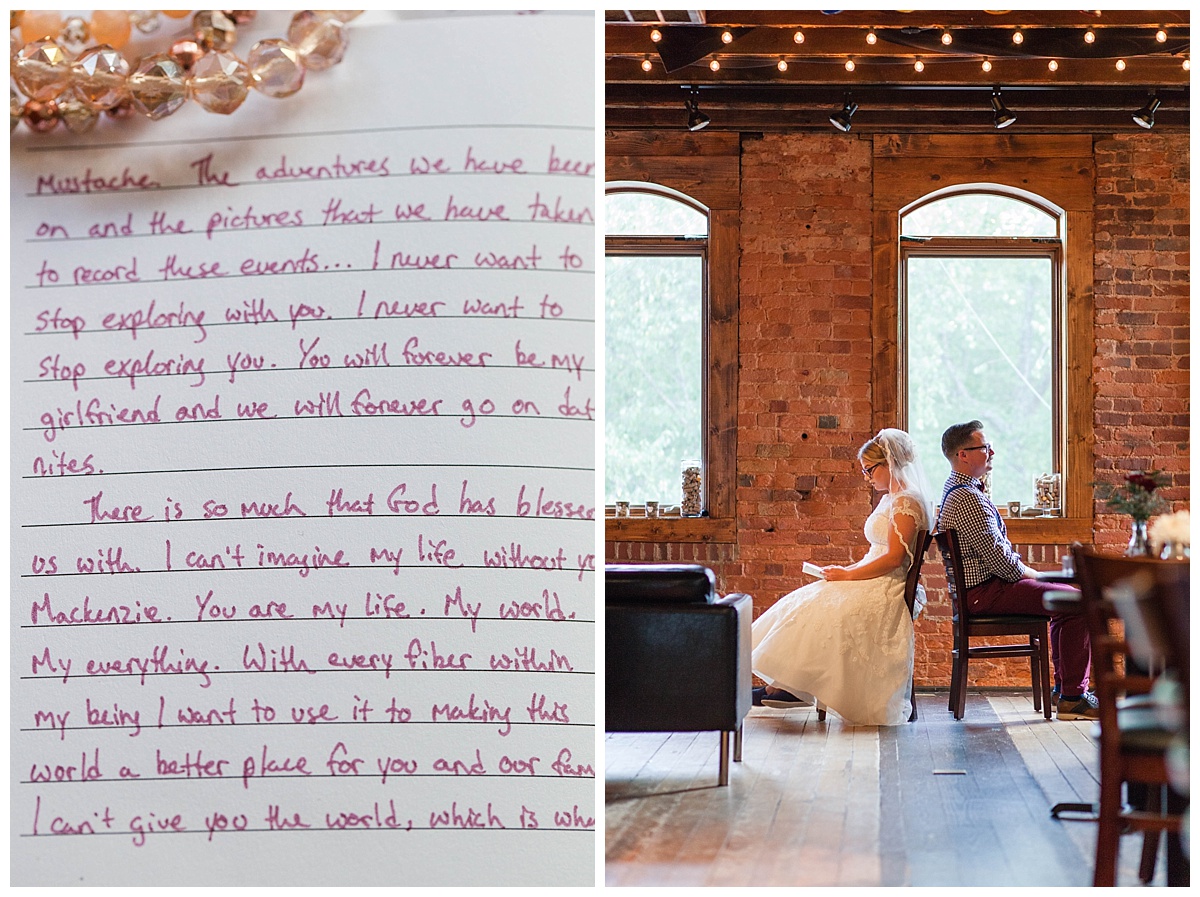 Mustache. The adventures we have been
on and the pictures that we have taken
to record these events... I never want to
stop exploring with you. I never want to
stop exploring you. You will forever be my
girlfriend and we will forever go on dat
nites.
There is so much that God has blessed
us with. I can't imagine my life without yo
Mackenzie. You are my life. My world.
My everything. With every fiber within
my being I want to use it to making this
world a better place for you and our fam
I can't give you the world, which is whe